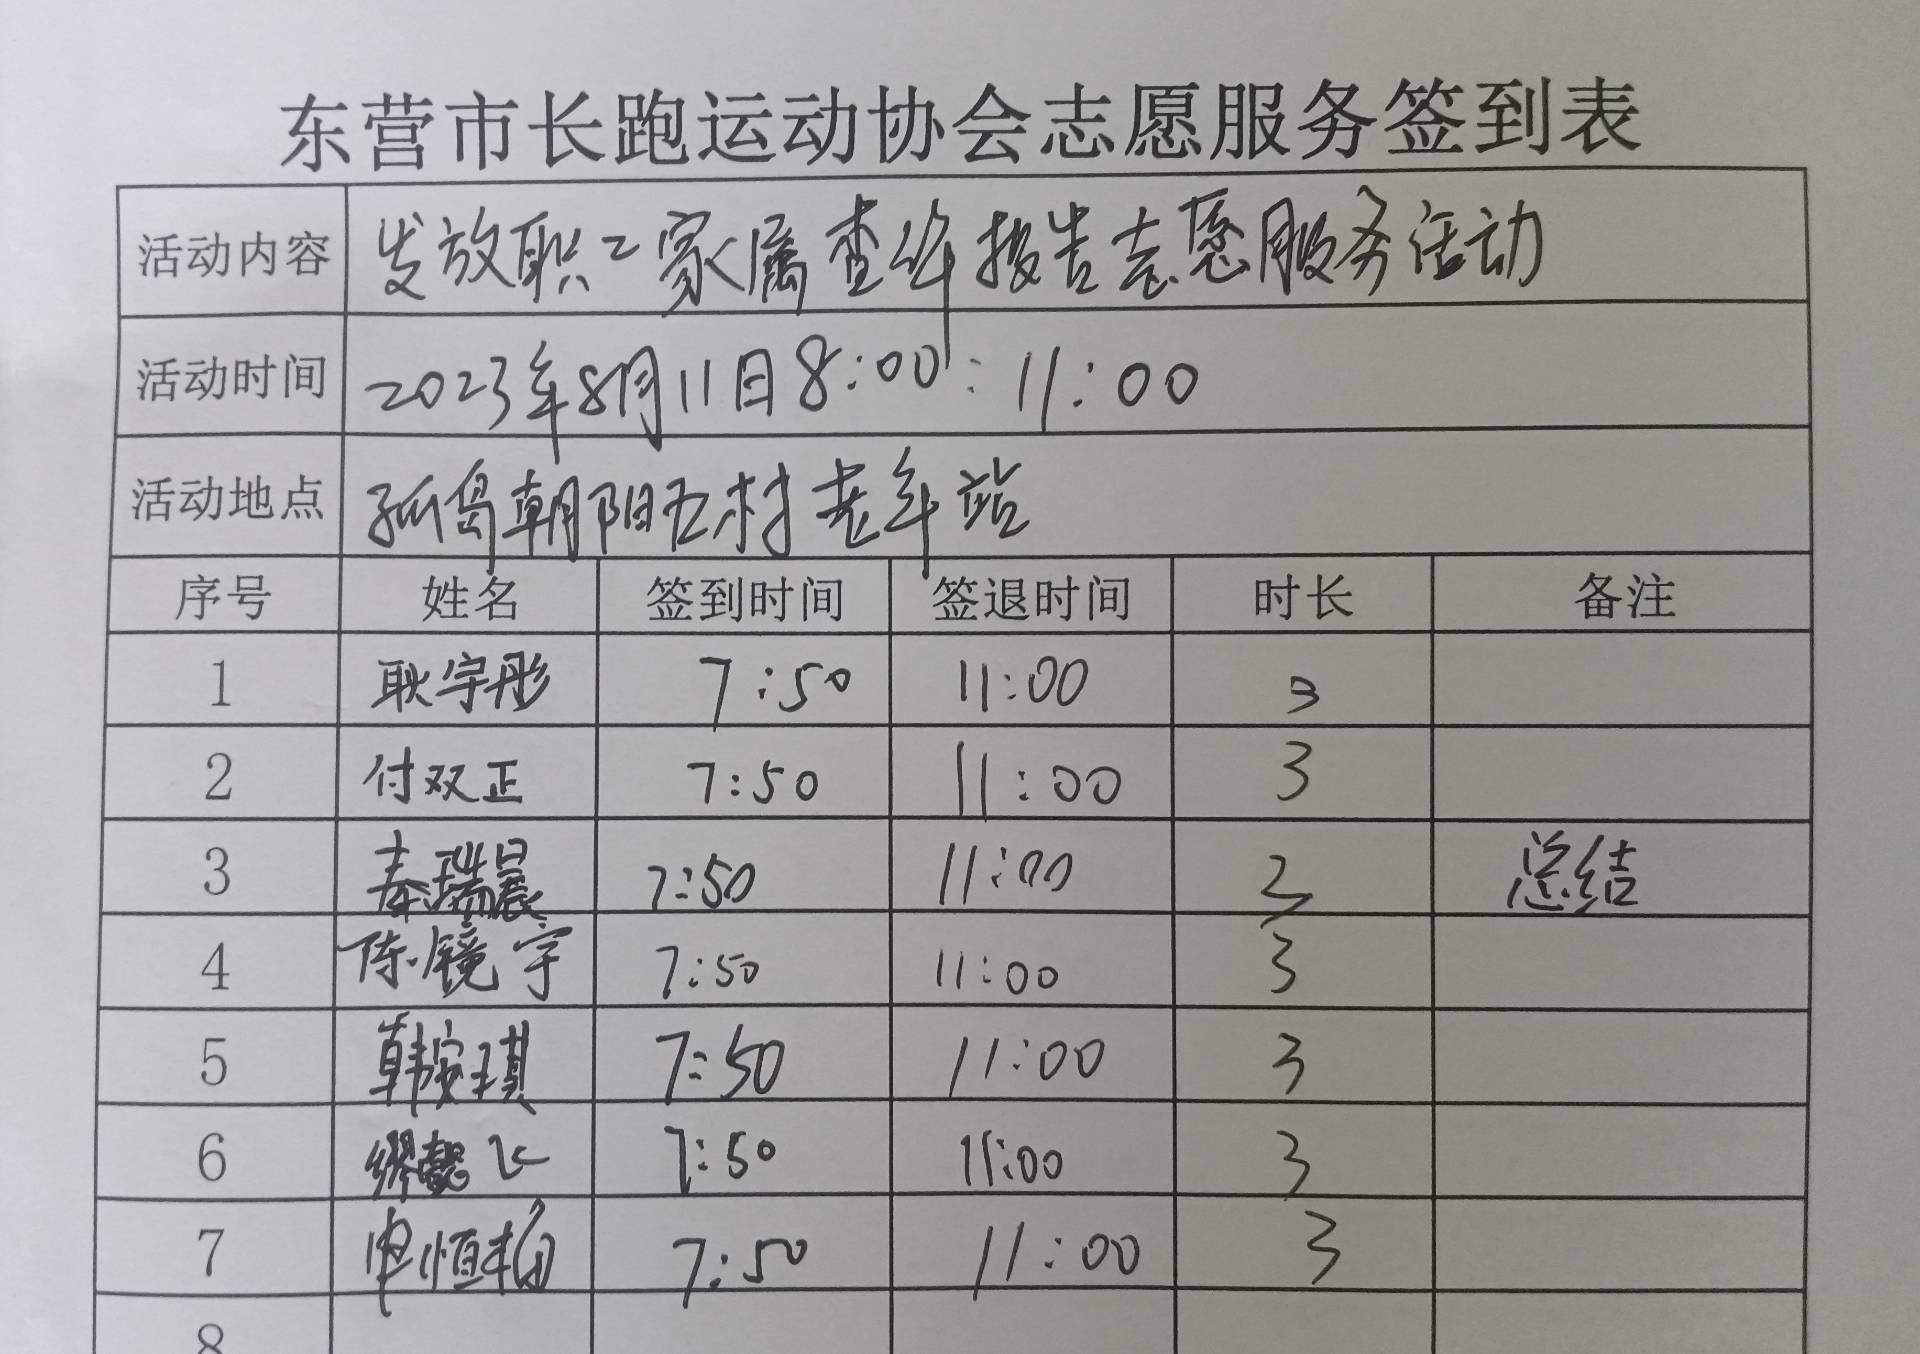 东营市长跑运动协会志愿服务签到表
活动内容 发放职工家属查体报告志愿服务活动
活动时间 2023年8月11日8:00:11:00
活动地点 孤岛朝阳五村老年站
序号 姓名 签到时间 签退时间 时长 备注
1 耿宇彤 7:50 11:00 3
2 付双正 7:50 11:00 3
3 秦瑞晨 7:50 11:00 3 总结
4 陈镜宇 7:50 11:00 3
5 韩安琪 7:50 11:00 3
6 缪懿飞 7:50 11:00 3
7 申恒柏 7:50 11:00 3
8